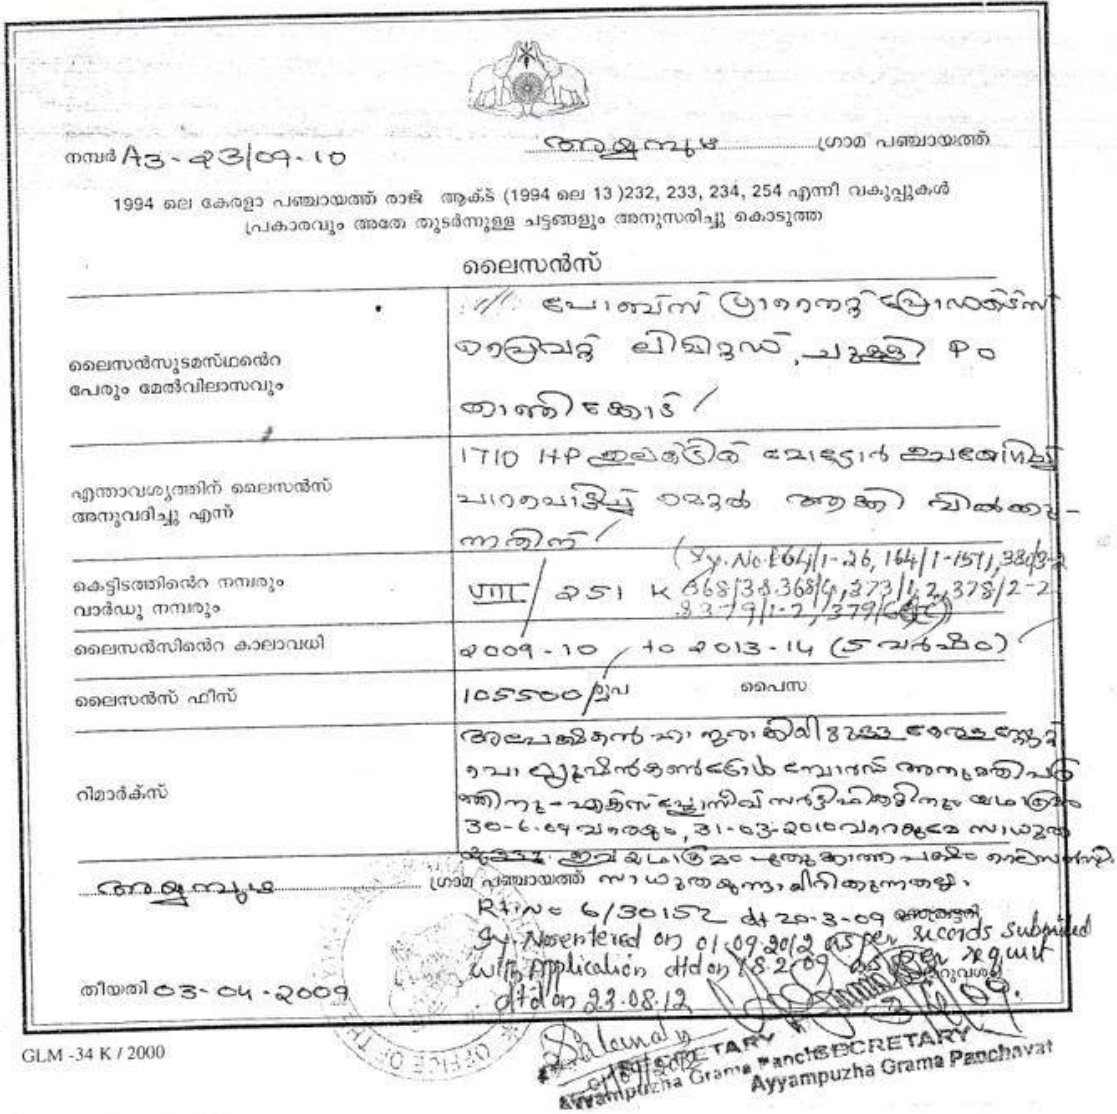 നമ്പർ A3-23/09-10
അയ്യമ്പുഴ ഗ്രാമ പഞ്ചായത്ത്
1994 ലെ കേരളാ പഞ്ചായത്ത് രാജ് ആക്ട് (1994 ലെ 13 )232, 233, 234, 254 എന്നീ വകുപ്പുകൾ
പ്രകാരവും അതേ തുടർന്നുള്ള ചട്ടങ്ങളും അനുസരിച്ചു കൊടുത്ത
ലൈസൻസ്
ലൈസൻസുടമസ്ഥൻെറ
പേരും മേൽവിലാസവും
പോബ്സ് ഗ്രാനൈറ്റ് പ്രൊഡക്ട്സ്
പ്രൈവറ്റ് ലിമിറ്റഡ്, ചുള്ളി P O
താന്നിക്കോട്
എന്താവശ്യത്തിന് ലൈസൻസ്
അനുവദിച്ചു എന്ന്
1710 HP ഇലക്ട്രിക് മോട്ടോർ ഉപയോഗിച്ച്
പാറപൊട്ടിച്ച് മെറ്റൽ ആക്കി വിൽക്കു-
ന്നതിന്
കെട്ടിടത്തിൻെറ നമ്പരും
വാർഡു നമ്പരും
(Sy.No.164/1-26, 164/1-151, 380/3-2
VIII/251 K 368/38.368/4, 373/1,2, 378/2-2
ലൈസൻസിൻെറ കാലാവധി
2009-10 to 2013-14 (5 വർഷം)
ലൈസൻസ് ഫീസ്
105500/രൂപ പൈസ
റിമാർക്സ്
അപേക്ഷകൻ ഹാജരാക്കിയിട്ടുള്ള കേരള സ്റ്റേറ്റ്
പൊല്യൂഷൻ കൺട്രോൾ ബോർഡ് അനുമതിപത്ര
ത്തിനും എക്സ്പ്ലോസീവ് സർട്ടിഫിക്കറ്റിനും യഥാക്രമം
30-6-09 വരെയും, 31-03-2010 വരെയുമേ സാധുത
ഉള്ളു. ഇവ യഥാക്രമം പുതുക്കാത്ത പക്ഷം ലൈസൻസി
അയ്യമ്പുഴ ഗ്രാമ പഞ്ചായത്ത് സാധുതയുണ്ടായിരിക്കുന്നതല്ല.
Rt.No 6/30152 dt 20-3-09
Sy. Nos entered on 01.09.2012 as per records submitted
with Application dtd on 18.2.09 as per request
dtd on 23.08.12
തീയതി 03-04-2009
OFFICE OF THE
GLM -34 K / 2000
SECRETARY
Ayyampuzha Grama Panchayat
SECRETARY
Ayyampuzha Grama Panchayat